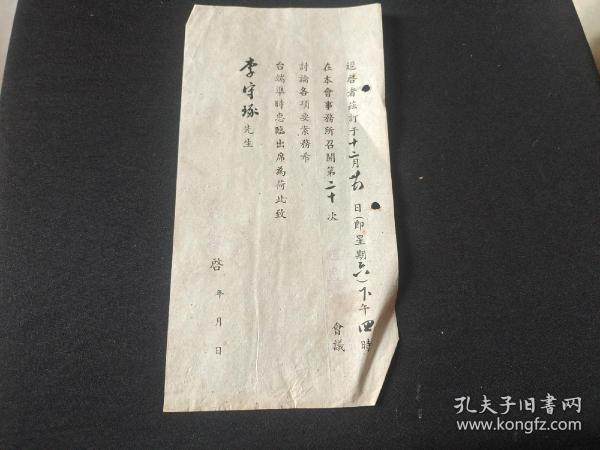 逕啓者茲訂于十二月廿日(即星期六)下午四時
在本會事務所召開第二十次會議
討論各項要案務希
台端準時惠臨出席為荷此致
李守琢先生
啓
年月日
孔夫子旧书网
www.kongfz.com